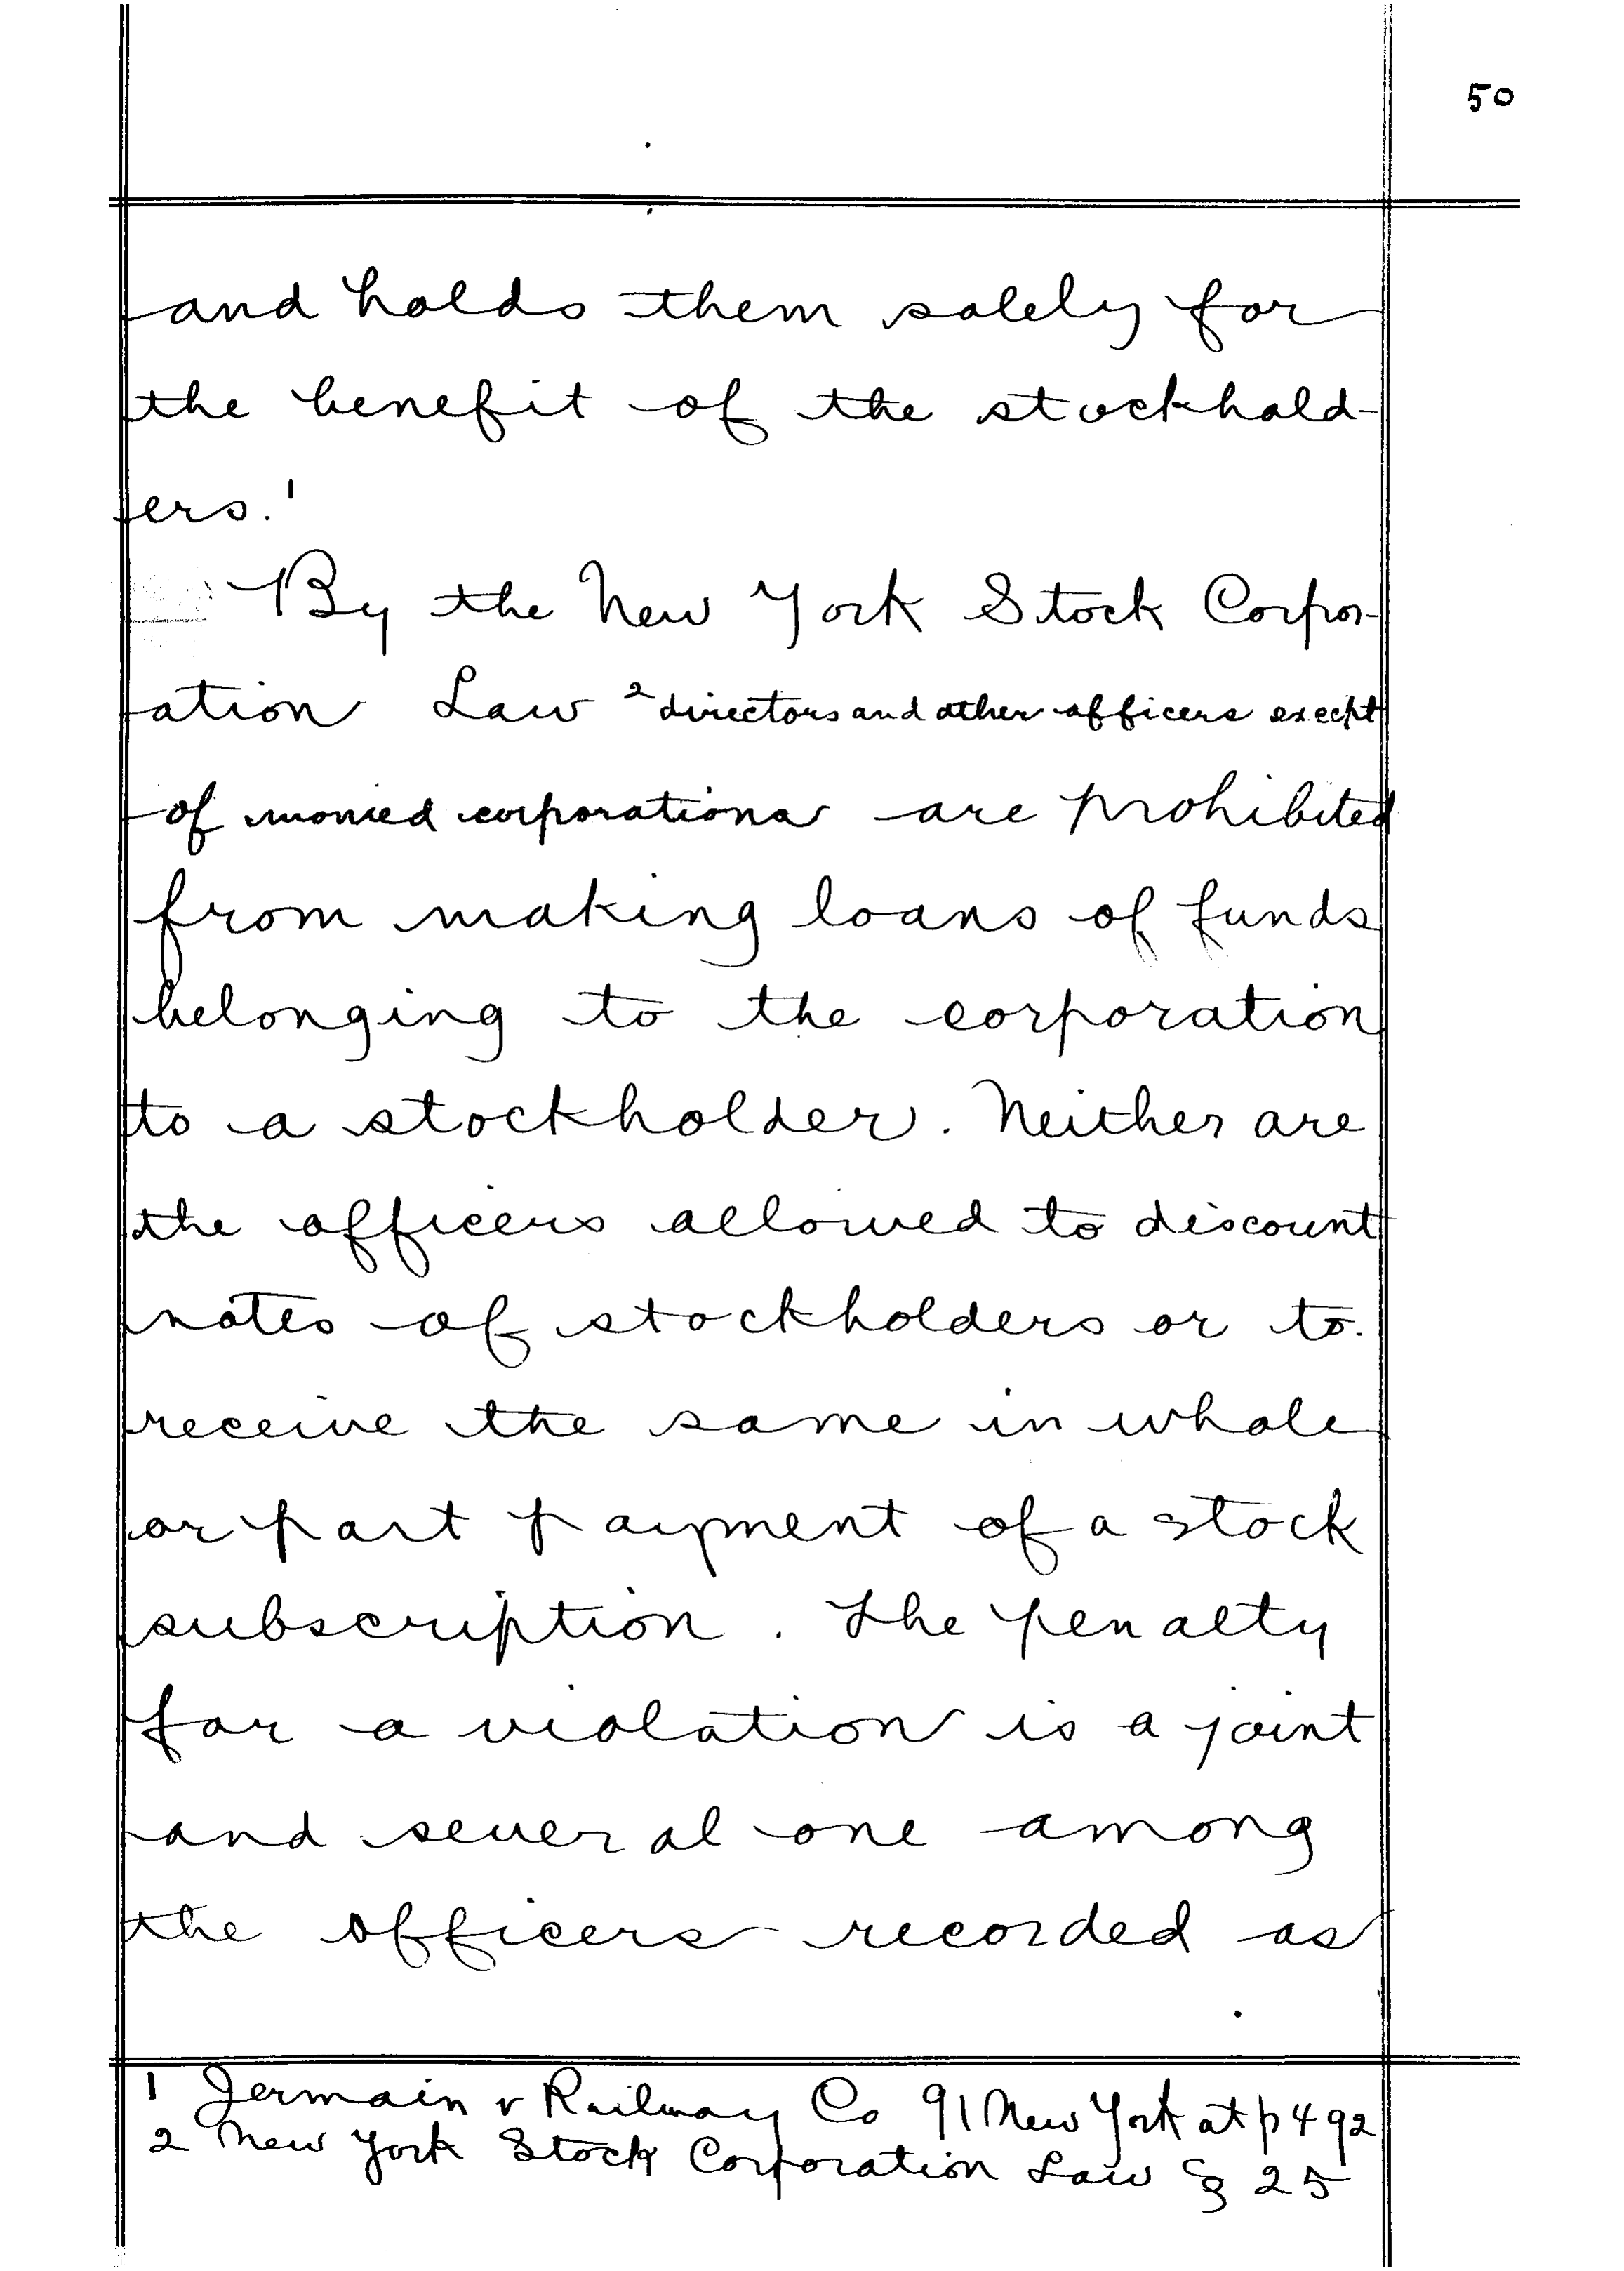 50
and holds them solely for
the benefit of the stockhold-
ers.¹
By the New York Stock Corpor-
ation Law ² directors and other officers except
of monied corporations are prohibited
from making loans of funds
belonging to the corporation
to a stockholder. Neither are
the officers allowed to discount
notes of stockholders or to
receive the same in whole
or part payment of a stock
subscription. The penalty
for a violation is a joint
and several one among
the officers recorded as
1 Jermain v Railway Co 91 New York at p 492
2 New York Stock Corporation Law § 25